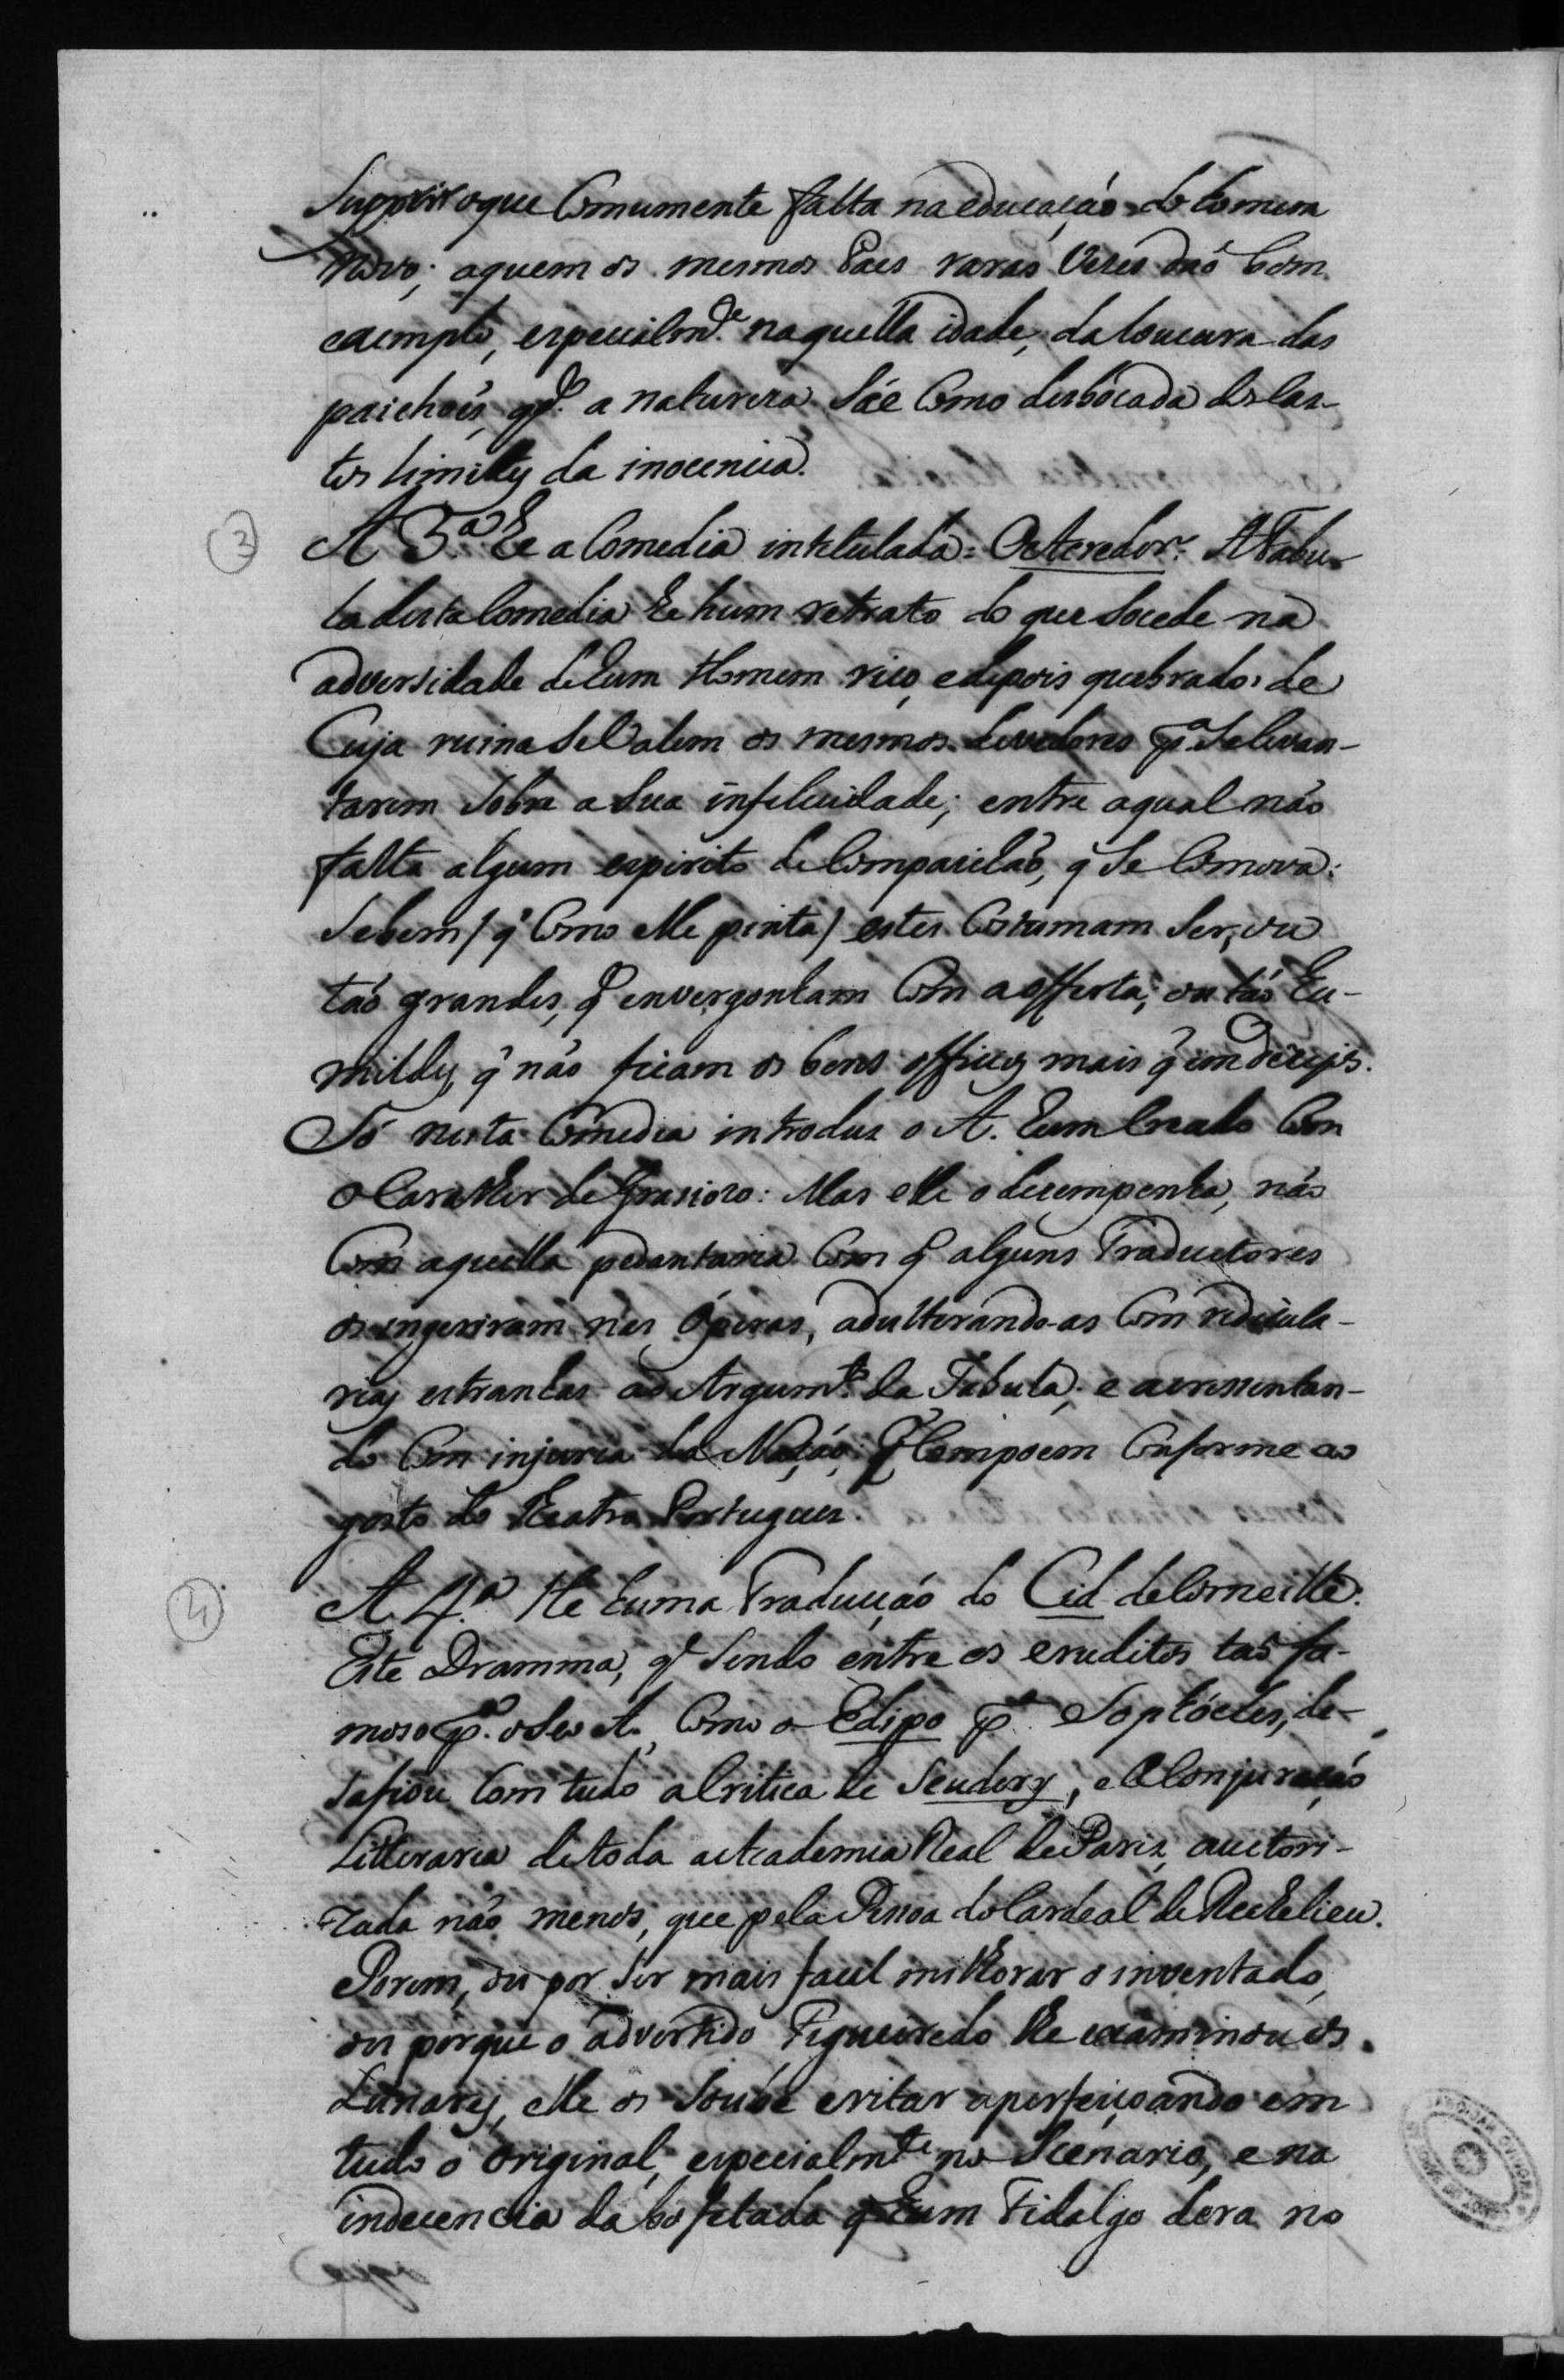 Supprir oque Comumente falta na educação do comum
Povo; aquem os mesmos Paes raras Vezes dão bom
exemplo, especialmte. naquella idade, da loucura das
paichoẽs, qdo. a natureza Sáe Como desbocada dos las-
tos limites da inocencia.
3 A 3.ª he a Comedia intitulada: O Acredor. A Fabu-
la desta Comedia he hum retrato do que Socede na
adversidade de hum Homem rico, e depois quebrado: de
Cuja ruina se Valem os mesmos devedores pa. Se levan-
tarem Sobre a Sua infelicidade; entre aqual não
falta algum espirito de Compaixão, q̃ Se Comova:
Sebem / q̃ Como elle pinta / estes Costumam Ser, ou
tão grandes, q̃ envergonham Com a offerta; ou tão hu-
mildes, q̃ não ficam os bons officios mais q̃ em dezejos.
Só nesta Comedia introduz o A. hum Creado Com
o Caracter de Grasiozo: Mas elle o dezempenha, não
Com aquella pedantaria Com q̃ alguns Traductores
os ingeriram nas Óperas, adulterando-as Com redicula-
rias estranhas ao Argumto. da Fabula; e acressentan-
do Com injuria da Nação: q̃ Compoem Conforme ao
gosto do Theatro Portuguez.
4 A 4.ª He huma Traducção do Cid de Corneille.
Este Dramma, q̃ Sendo entre os eruditos tão fa-
moso pa. o Seo A., Como o Edipo pa. Sophócles, de-
safiou Com tudo a Critica de Scudery, e a Conjuração
Litteraria de toda a Academia Real de Pariz, auctori-
zada não menos, que pela Pessoa do Cardeal de Rechelieu.
Porem, ou por Ser mais facil milhorar o inventado,
ou porque o advertido Figueiredo lhe examinou os
Lunares, elle os Soube evitar aperfeiçoando em
tudo o original, especialmte. no Scenario, e na
indecencia da bofetada q̃ hum Fidalgo dera no